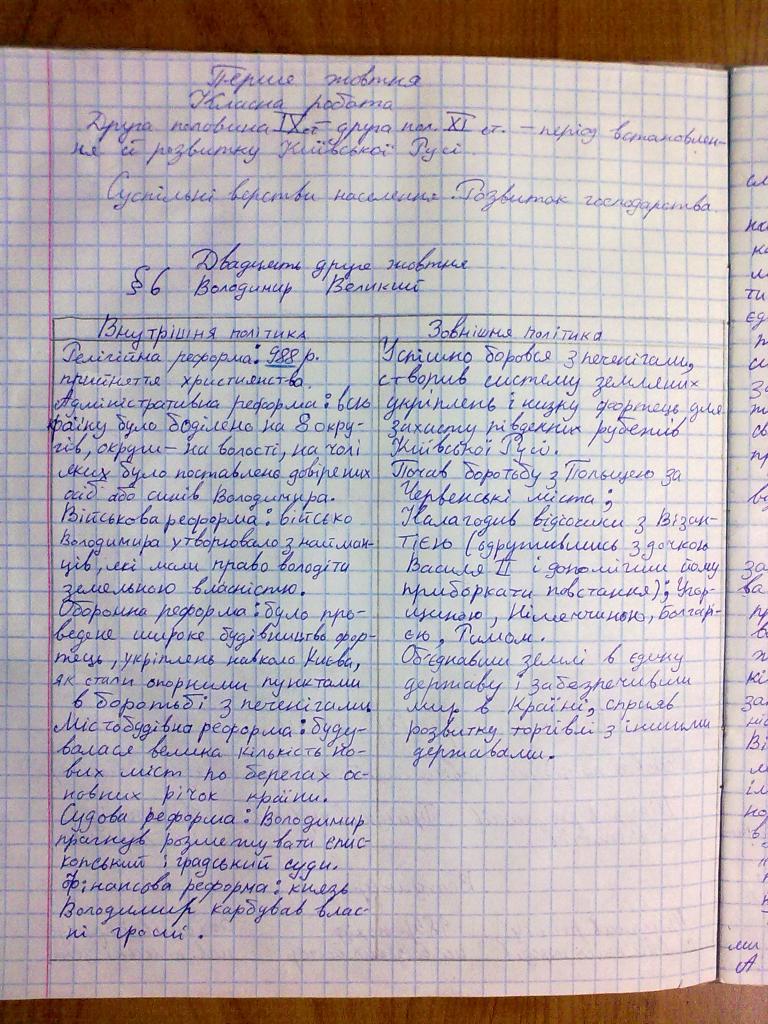 Перше жовтня
Класна робота
Друга половина IX ст – друга пол. XI ст. – період встановлен-
ня й розвитку Київської Русі
Суспільні верстви населення. Розвиток господарства.
Двадцять друге жовтня
§6 Володимир Великий
Внутрішня політика
Релігійна реформа: 988 р.
прийнеття християнства.
Адміністративна реформа: всю
країну було поділено на 8 окру-
гів, округи – на волості, на чолі
яких було поставлено довірених
осіб або синів Володимира.
Військова реформа: військо
Володимира утворювало з найман-
ців, які мали право володіти
земельною власністю.
Оборонна реформа: було про-
ведене широке будівництво фор-
тець, укріплень навколо Києва,
як стали опорними пунктами
в боротьбі з печенігами.
Містобудівна реформа: буду-
валася велика кількість но-
вих міст по берегах ос-
новних річок країни.
Судова реформа: Володимир
прагнув розмежувати єпис-
копський і градський суди.
Фінансова реформа: князь
Володимир карбував влас-
ні гроші.
Зовнішня політика
Успішно боровся з печенігами,
створив систему земляних
укріплень і низку фортець для
захисту південних рубежів
Київської Русі.
Почав боротьбу з Польщею за
Червенські міста;
Налагодив відносини з Візан-
тією (одружившись з дочкою
Василя II і допомігши йому
приборкати повстання); Угор-
щиною, Німеччиною, Болгар-
єю, Римом.
Об'єднавши землі в єдину
державу і забезпечивши
мир в Країні, сприяв
розвитку торгівлі з іншими
державами.